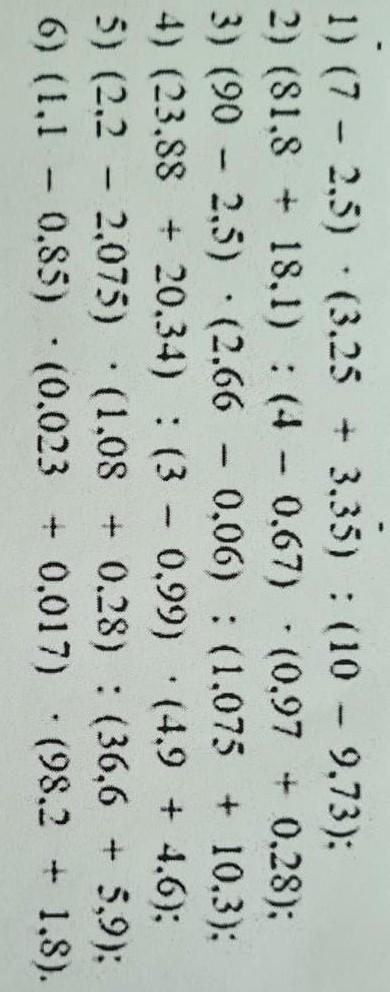 1) (7 − 2,5) · (3,25 + 3,35) : (10 − 9,73);
2) (81,8 + 18,1) : (4 − 0,67) · (0,97 + 0,28);
3) (90 − 2,5) · (2,66 − 0,06) : (1,075 + 10,3);
4) (23,88 + 20,34) : (3 − 0,99) · (4,9 + 4,6);
5) (2,2 − 2,075) · (1,08 + 0,28) : (36,6 + 5,9);
6) (1,1 − 0,85) · (0,023 + 0,017) · (98,2 + 1,8).